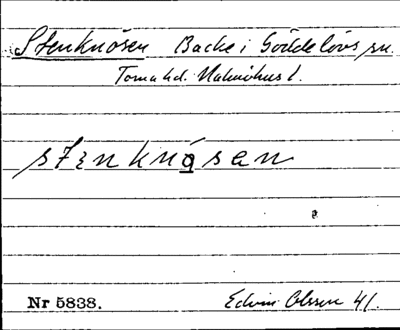 Stenknösen Backe i Gödelövs sn.
Torna hd. Malmöhus l.
stenknösen
Nr 5838.
Edvin Olsson 41.